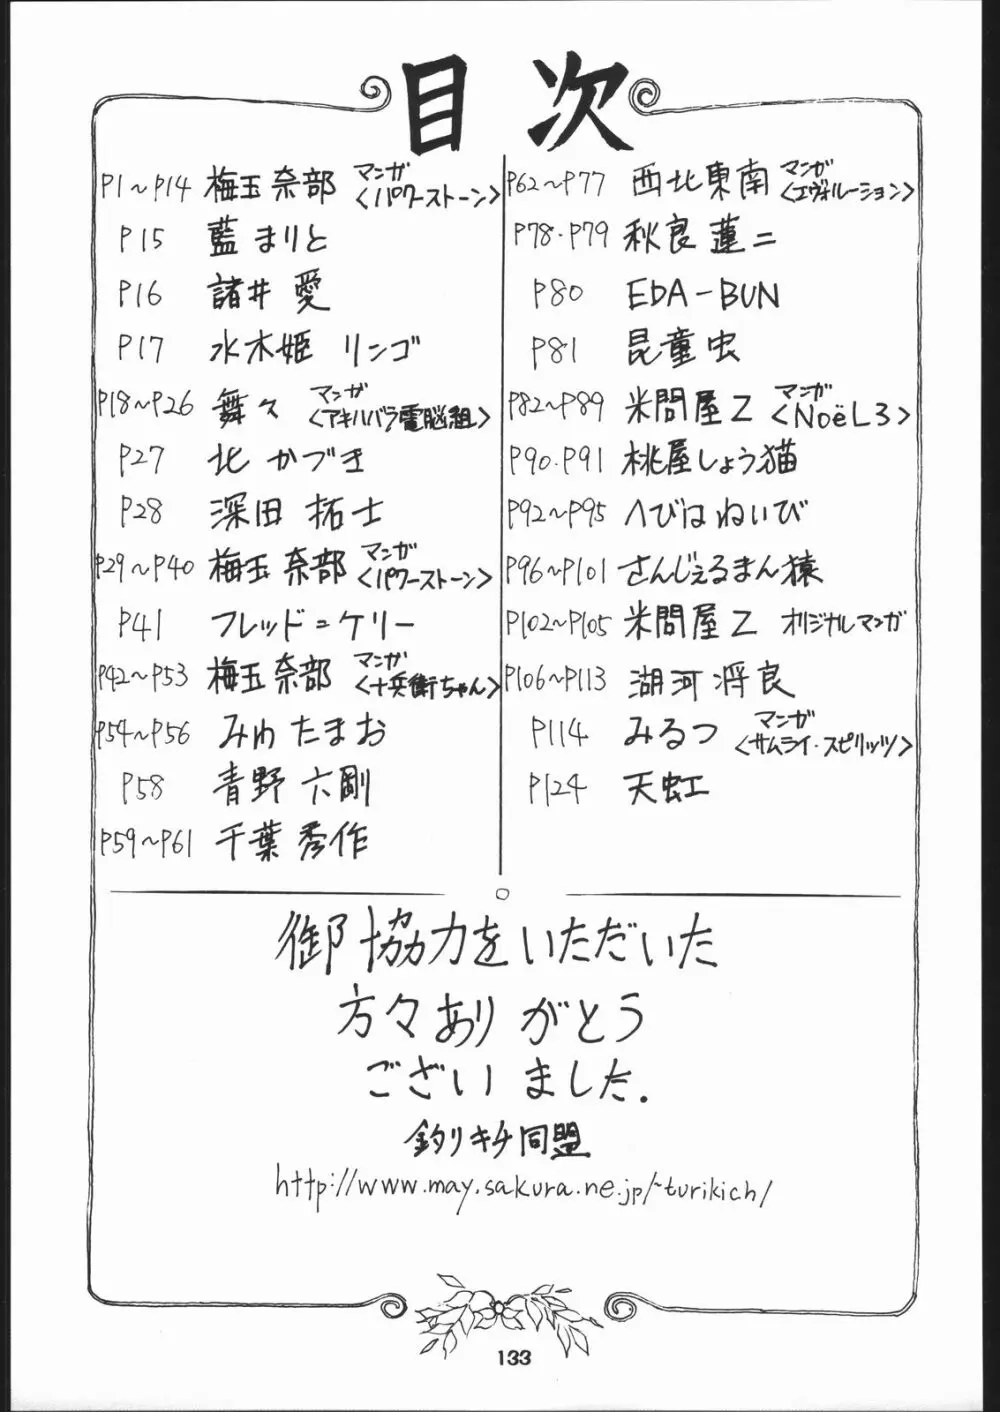 目次
P1～P14 梅玉奈部 マンガ〈パワーストーン〉
P15 藍まりと
P16 諸井 愛
P17 水木姫 リンゴ
P18～P26 舞々 マンガ〈アキハバラ電脳組〉
P27 北かづき
P28 深田 拓士
P29～P40 梅玉奈部 マンガ〈パワーストーン〉
P41 フレッド＝ケリー
P42～P53 梅玉奈部 マンガ〈十兵衛ちゃん〉
P54～P56 みわたまお
P58 青野六剛
P59～P61 千葉秀作
P62～P77 西北東南 マンガ〈エヴォルーション〉
P78・P79 秋良蓮二
P80 EDA-BUN
P81 昆童虫
P82～P89 米問屋Z マンガ〈NoëL3〉
P90.P91 桃屋しょう猫
P92～P95 へびはねいび
P96～P101 さんじぇるまん猿
P102～P105 米問屋Z オリジナルマンガ
P106～P113 湖河将良
P114 みるつ マンガ〈サムライ・スピリッツ〉
P124 天虹
御協力をいただいた
方々ありがとう
ございました.
釣りキチ同盟
http://www.may.sakura.ne.jp/~turikich/
133